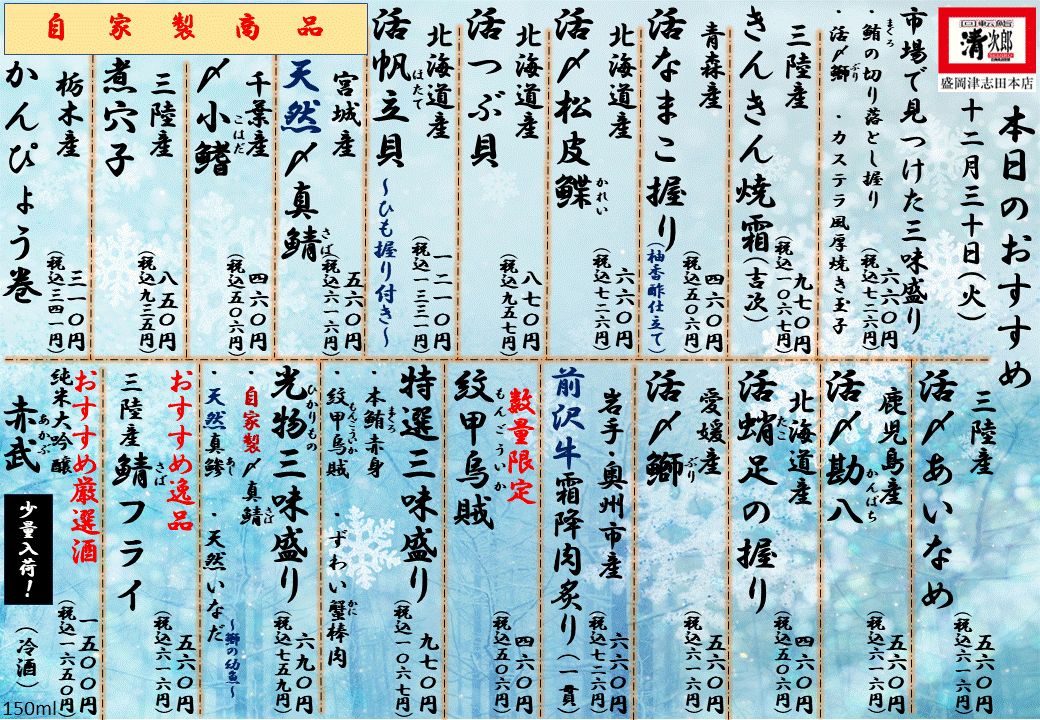 回転鮨
清次郎
盛岡津志田本店
本日のおすすめ
十二月三十日(火)
市場で見つけた三味盛り
・鮪の切り落とし握り
まぐろ
・活〆鰤
ぶり
・カステラ風厚焼き玉子
六六〇円
(税込七二六円)
三陸産
きんきん焼霜(吉次)
九七〇円
(税込一〇六七円)
青森産
活なまこ握り(柚香酢仕立て)
四六〇円
(税込五〇六円)
北海道産
活〆松皮鰈
かれい
六六〇円
(税込七二六円)
北海道産
活つぶ貝
八七〇円
(税込九五七円)
北海道産
活帆立貝
ほたて
~ひも握り付き~
一二一〇円
(税込一三三一円)
自家製商品
宮城産
天然〆真鯖
さば
五六〇円
(税込六一六円)
千葉産
〆小鰭
こはだ
四六〇円
(税込五〇六円)
三陸産
煮穴子
八五〇円
(税込九三五円)
栃木産
かんぴょう巻
三一〇円
(税込三四一円)
三陸産
活〆あいなめ
五六〇円
(税込六一六円)
鹿児島産
活〆勘八
かんぱち
五六〇円
(税込六一六円)
北海道産
活蛸足の握り
たこ
四六〇円
(税込五〇六円)
愛媛産
活〆鰤
ぶり
五六〇円
(税込六一六円)
岩手・奥州市産
前沢牛霜降肉炙り(一貫)
六六〇円
(税込七二六円)
数量限定
紋甲烏賊
もんごういか
四六〇円
(税込五〇六円)
特選三味盛り
・本鮪赤身
まぐろ
・紋甲烏賊
もんごういか
・ずわい蟹棒肉
かに
九七〇円
(税込一〇六七円)
光物三味盛り
ひかりもの
・自家製〆真鯖
さば
・天然真鯵
あじ
・天然いなだ
~鰤の幼魚~
六九〇円
(税込七五九円)
おすすめ逸品
三陸産鯖フライ
さば
五六〇円
(税込六一六円)
おすすめ厳選酒
純米大吟醸
赤武
あかぶ
少量入荷!
(冷酒)
一五〇〇円
(税込一六五〇円)
150ml